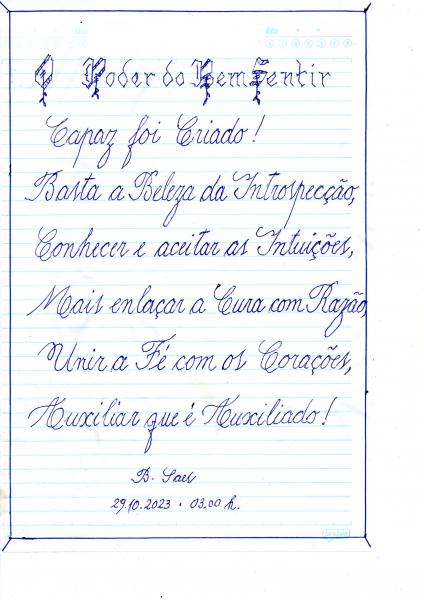 O Poder do Bem Sentir
Capaz foi Criado!
Basta a Beleza da Introspecção,
Conhecer e aceitar as Intuições,
Mais enlaçar a Cura com Razão,
Unir a Fé com os Corações,
Auxiliar que é Auxiliado!
B. Sael
29.10.2023 • 03.00 h.